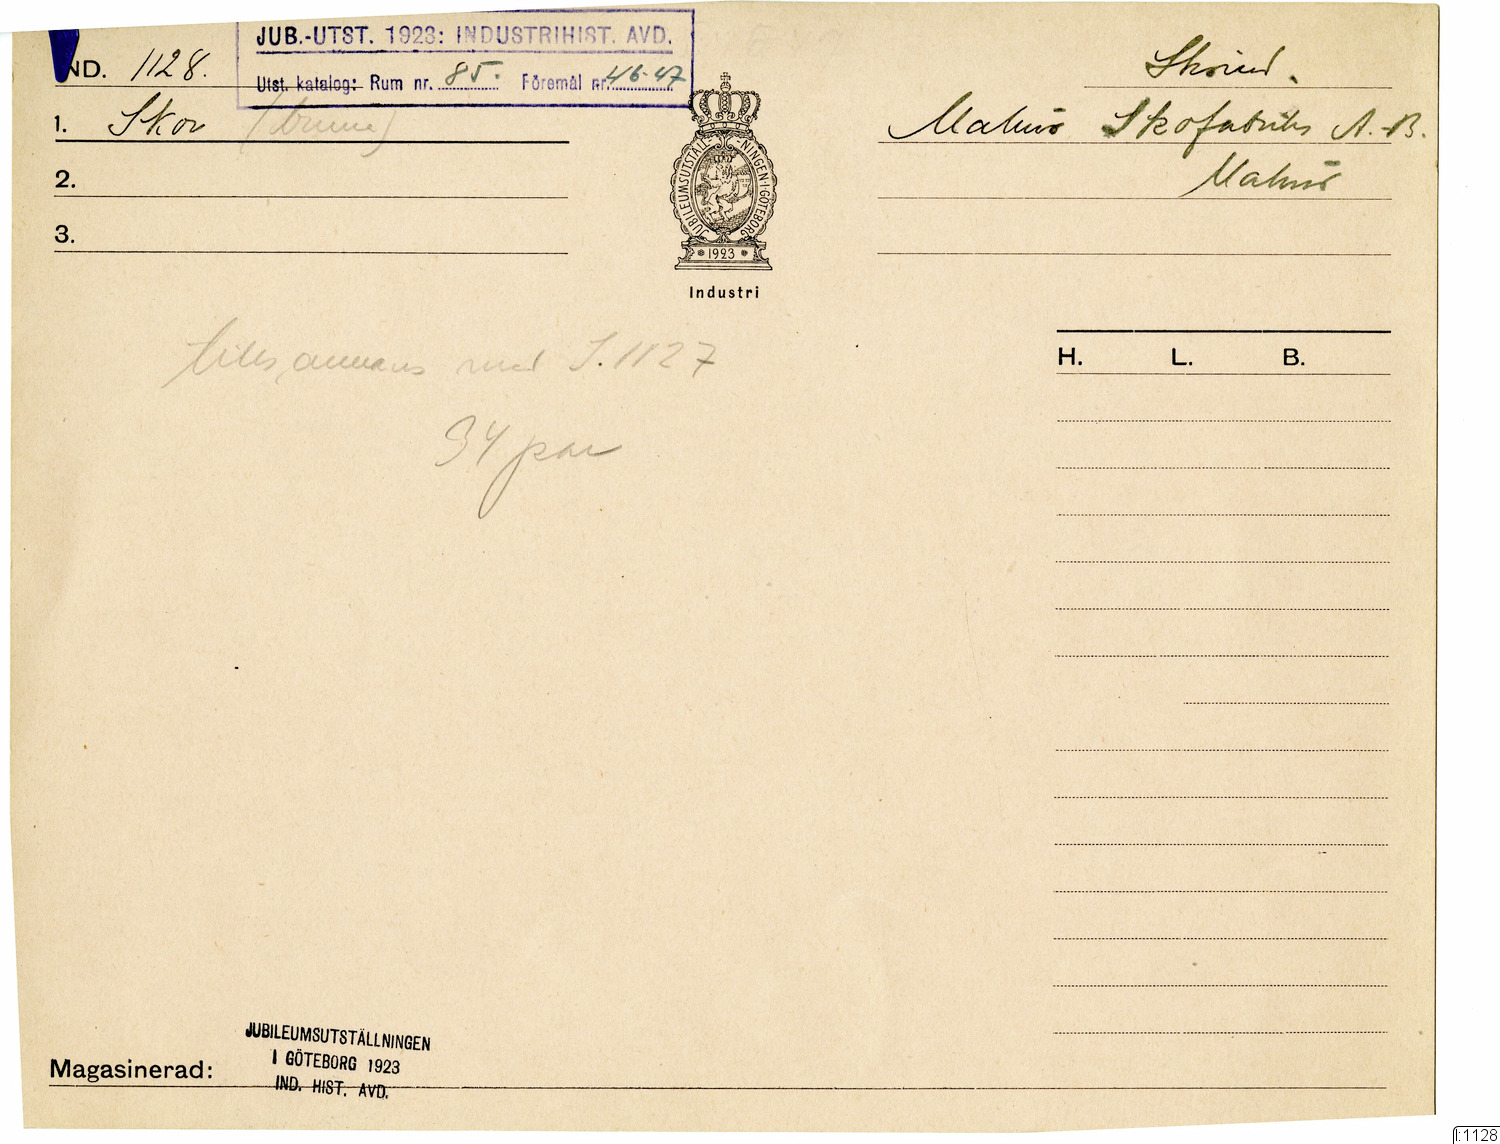 JUB.-UTST. 1923: INDUSTRIHIST. AVD.
Utst. katalog: Rum nr. 85. Föremål nr. 46-47
IND. 1128.
Skoind.
1. Skor
Malmö Skofabriks A.-B.
2.
Malmö
3.
JUBILEUMSUTSTÄLLNINGEN·I·GÖTEBORG
1923
Industri
tillsammans med I.1127
34 par
H. L. B.
JUBILEUMSUTSTÄLLNINGEN
I GÖTEBORG 1923
IND. HIST. AVD.
Magasinerad:
I:1128